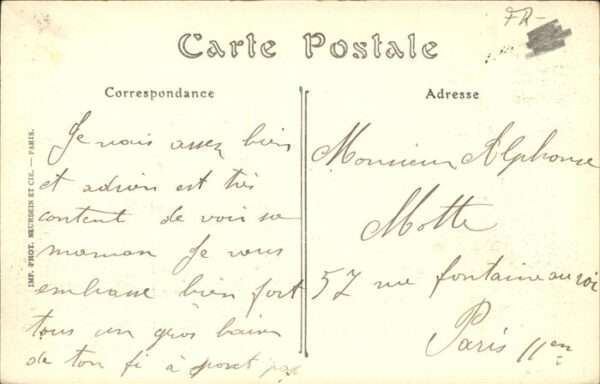 FR-
Carte Postale
Correspondance
Je vais assez bien
et adrien est très
content de voir sa
maman Je vous
embrasse bien fort
tous un gros
de ton fi à
Adresse
Monsieur Alphonse
Motte
57 rue fontaine au roi
Paris 11en
IMP. PHOT. NEURDEIN ET CIE. — PARIS.